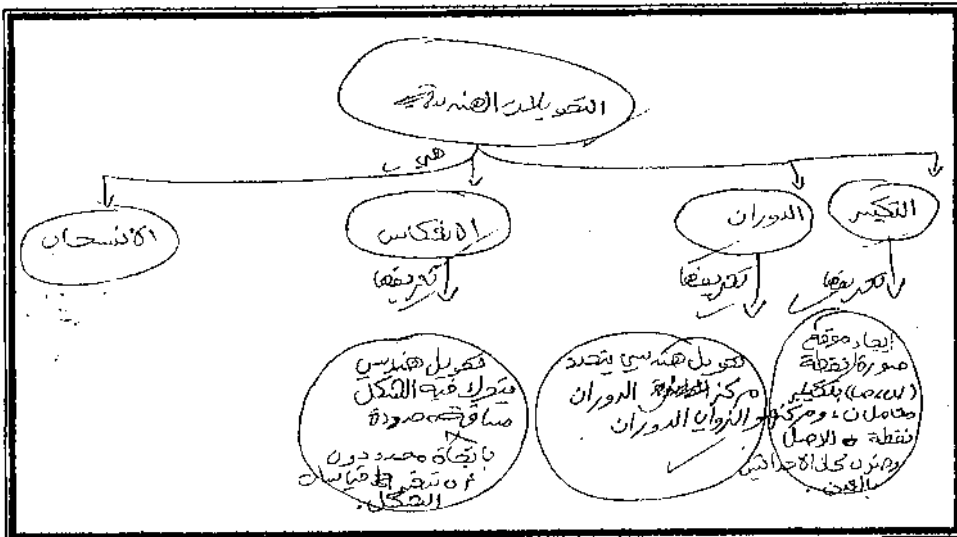 التحويلات الهندسية
هي
التكبير
الدوران
الانعكاس
الانسحاب
تعريفها
تعريفها
تعريفها
إيجاد موقع
صورة نقطة
(س، ص) بتكبير
معامل ن، ومركزه
نقطة الاصل
الاحداثيين
تحويل هندسي يتحدد
مركز الدوران
والزوايا الدوران
تحويل هندسي
يتحرك فيه الشكل
مسافة محدودة
باتجاه محدد دون
أن تتغير قياسات
الشكل.